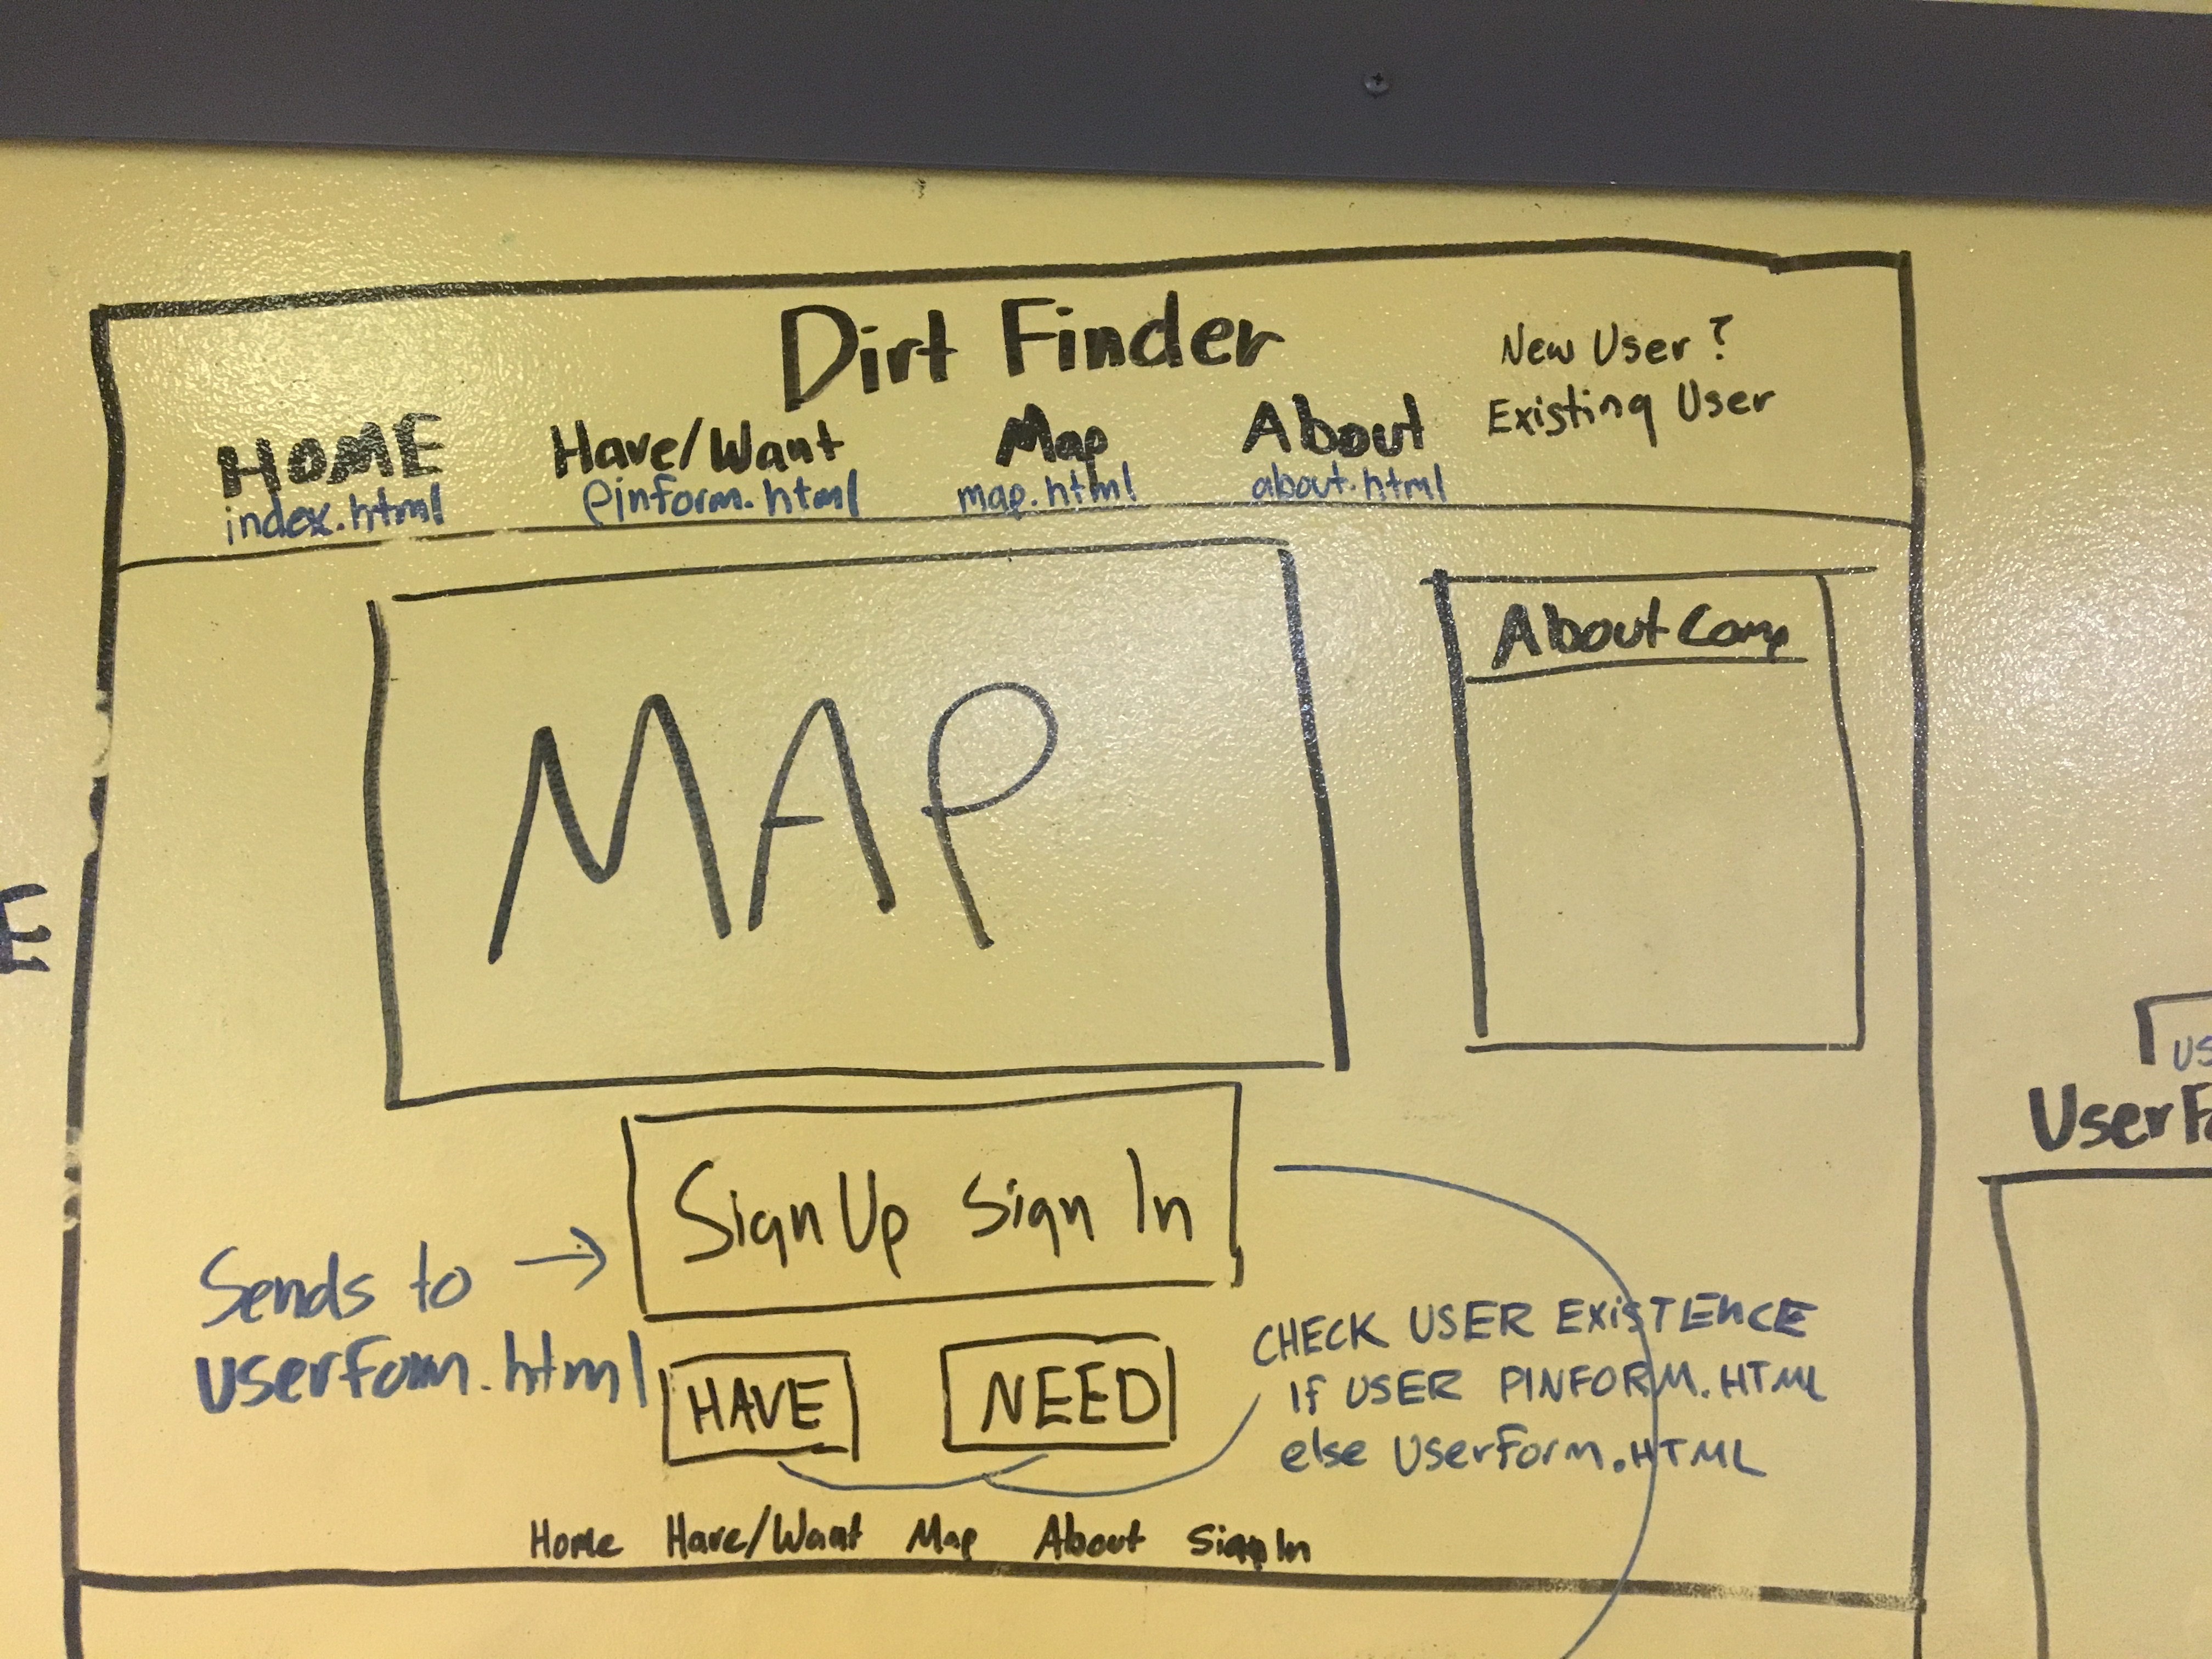 Dirt Finder
New User ?
Existing User
HOME
Have/Want
Map
About
index.html
Pinform.html
map.html
about.html
MAP
About Comp
Sign Up Sign In
Sends to →
userform.html
HAVE
NEED
CHECK USER EXISTENCE
If USER PINFORM.HTML
else UserForm.HTML
Home Have/Want Map About Sign In